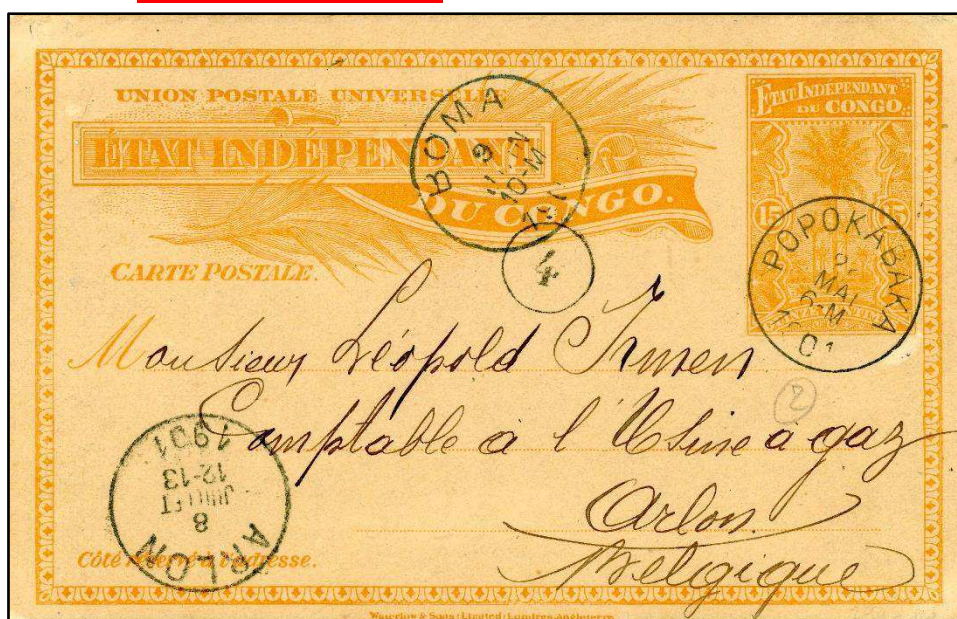 UNION POSTALE UNIVERSELLE
ÉTAT INDÉPENDANT
DU CONGO.
CARTE POSTALE.
ÉTAT INDÉPENDANT
DU CONGO.
15 15
BOMA
9
JUIN
10-M
4
POPOKABAKA
MAI
6-M
01
Monsieur Léopold
Comptable à l'Usine à gaz
Arlon
Belgique
2
ARLON
8
JUILLET
12-13
1901
Côté réservé à l'adresse.
Waterlow & Sons Limited, Londres Angleterre